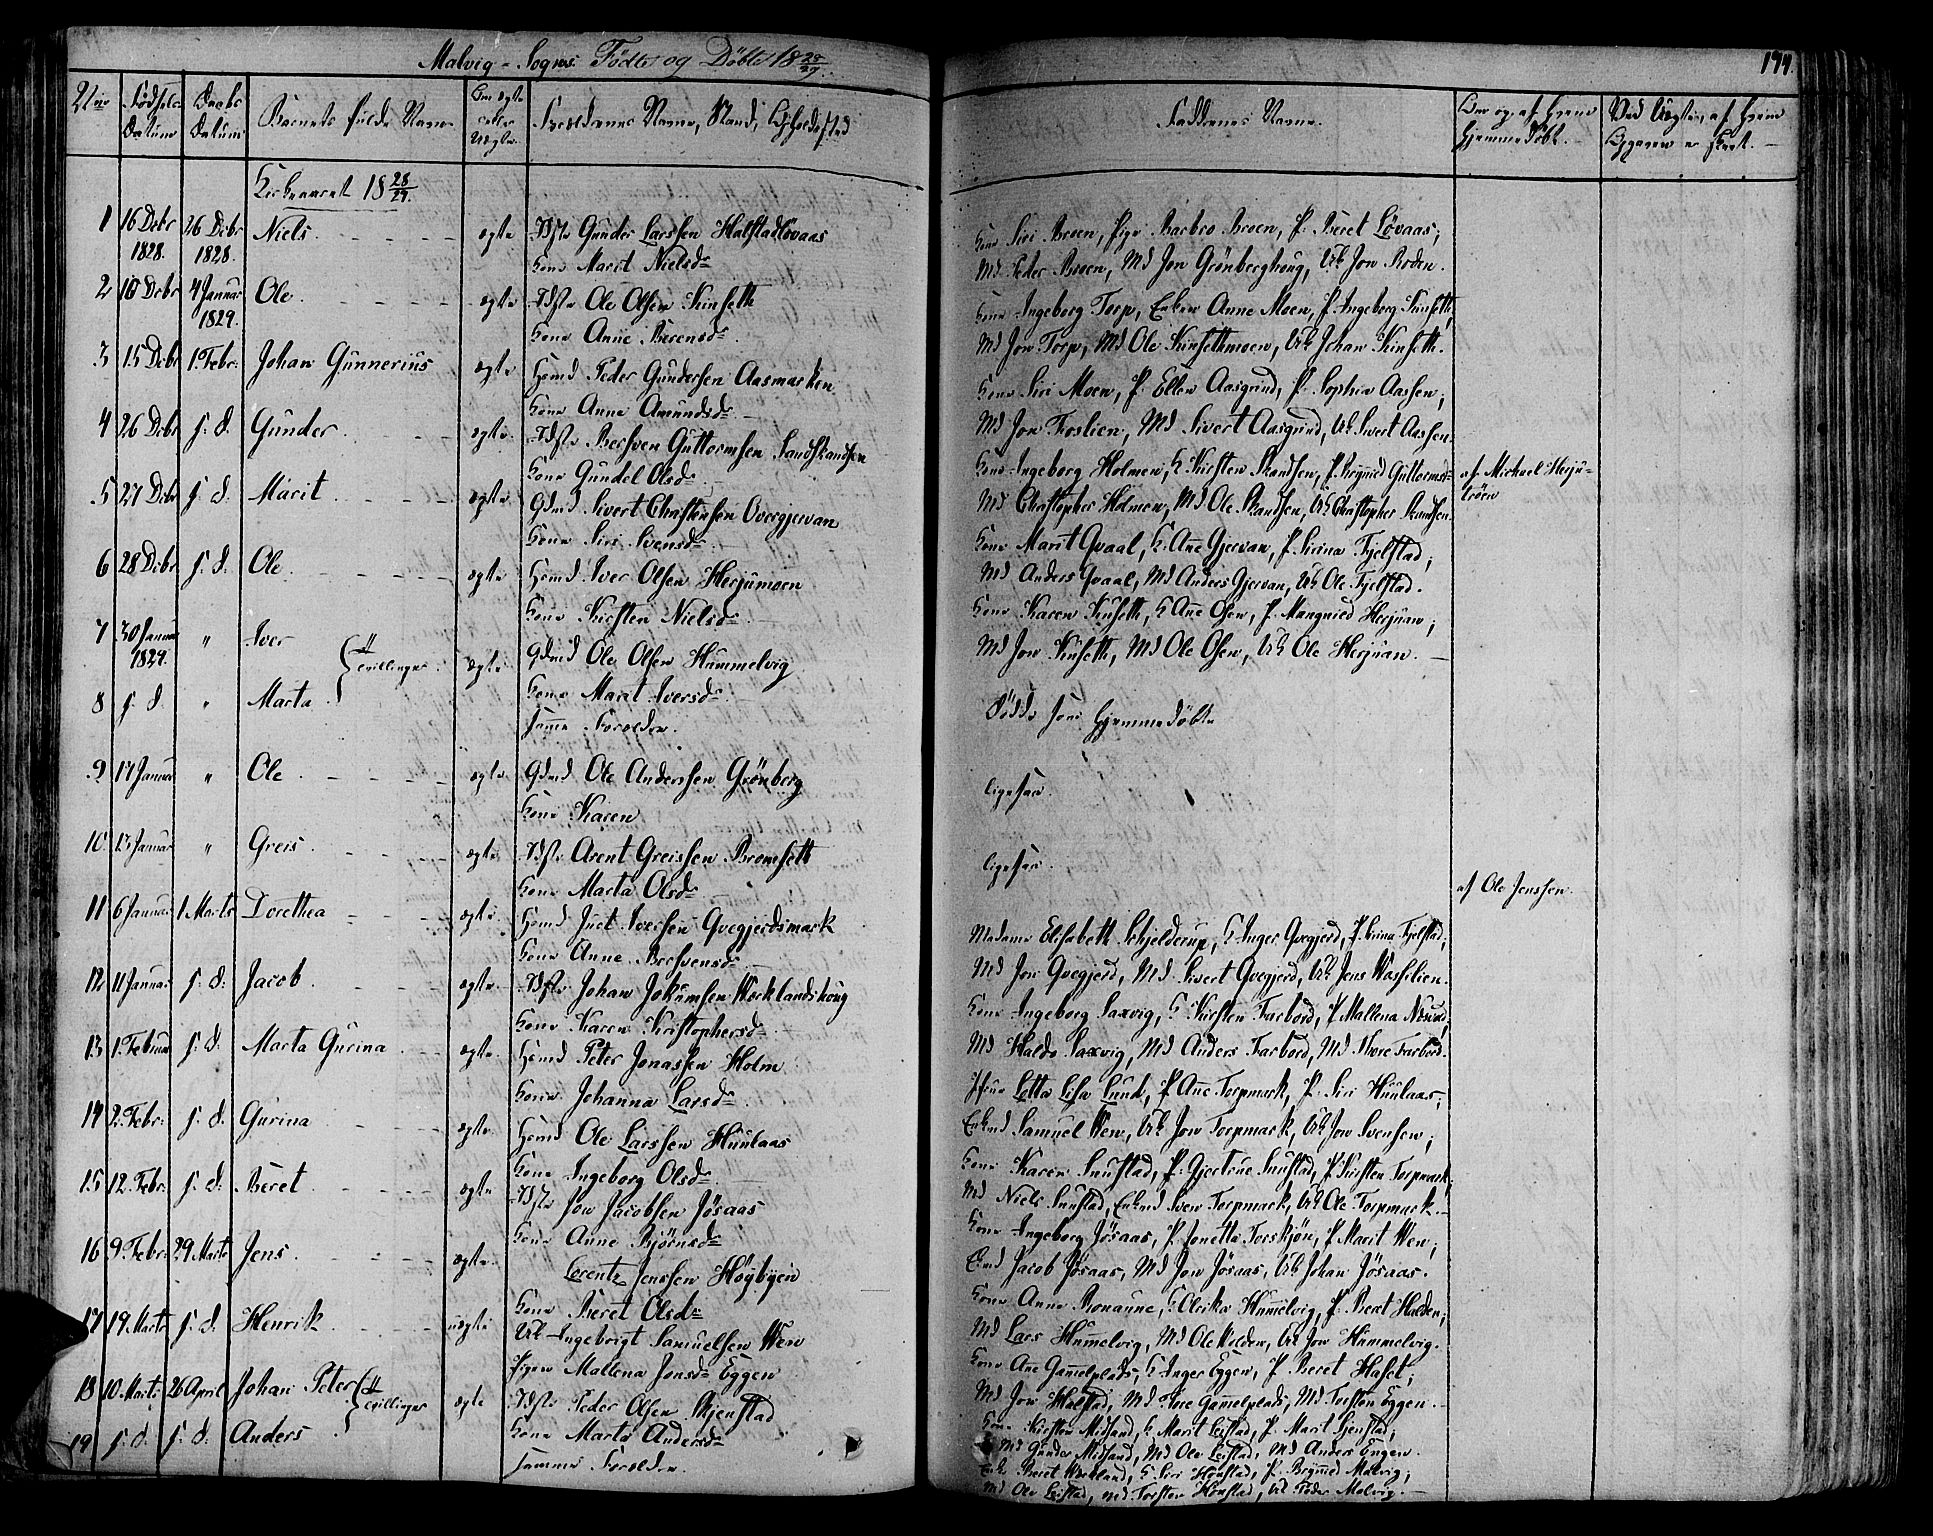 Malvig-Sogns Fødte og Døbte 18 28/29.
199.
No
Fødsels Datum
Daabs Datum
Barnets fulde Navn
Om ægte eller Uægte.
Forældrenes Navne, Stand, Opholdssted
Faddernes Navne.
Om og af hvem hjemmedøbt.
Ved Uægte, af hvem
er skeet.
Kirkeaaret 18 28/29.
1 16 Decbr 1828. 26 Decbr 1828. Niels. ægte Idstr Gunder Larssen Halstadlövaas
Kone Marit Nielsdr
Kone Siri Broen, Pige Barbro Broen, P: Beret Løvaas;
Md Peder Broen, Md Jon Grönberghoug, Uk Jon Roden.
2 10 Decbr 4 Januar 1829. Ole. ægte Idstr Ole Olsen Kinseth
Kone Anne Berensdr
Kone Ingeborg Torp, Enken Anne Moen, P. Ingeborg Kinseth,
Md Jon Torp, Md Ole Kinsethmoen, Uk Johan Kinseth.
3 15 Decbr 1. Febr: Johan Gunnerius ægte Huusmd Peder Gundersen Aasmarken
Kone Anne Amundsdr
Kone Siri Moen, P: Ellen Aasgrind, P: Sophia Aassen;
Md Jon Troslien, Md Sivert Aasgrind, Uk Sivert Aassen.
4 26 Decbr s: d: Gunder ægte Idstr Bersven Guttormsen Sandskandsen
Kone Gundel Olsdr
Kone Ingeborg Holmen, K. Kirsten Skandsen, P. Brynild Guttormsdr
Md Christopher Holmen, Md Ole Skandsen, Uk Christopher Skandsen.
af Michael Herjutröen
5 27 Decbr s: d: Marit ægte Gdmd Sivert Chrestensen Overgjervan
Kone Siri Svensdr
Kone Marit Qvaal, K. Ane Gjervan, P. Sirina Fjelstad;
Md Anders Qvaal, Md Anders Gjervan, Uk Ole Fjelstad.
6 28 Decbr s: d: Ole ægte Huusmd Iver Olsen Herjumoen
Kone Kirsten Nielsdr
Kone Karen Kinseth, K Ane Olsen, P. Mangnild Herjuan;
Md Jon Kinseth, Md Ole Olsen, Uk Ole Herjuan.
7 30 Januar 1829. " Iver Tvillinger ægte Gdmd Ole Olsen Hummelvig
Kone Marit Iversdr
8 s: d: " Marta
Samme Forældre.
Døde som hjemmedøbte
9 17 Januar " Ole ægte Gdmd Ole Anderssen Grönberg
Kone Karen
ligesaa
10 13 Januar " Greis. ægte Idstr Arent Greissen Bromseth
Kone Marta Olsdr
ligesaa
11 6 Januar 1 Marts Dorethea ægte Huusmd Just Iversen Qvegjerdsmark
Kone Anne Bersvensdr
Madame Elisabeth Schjelderup, K. Inger Qvegjerd, P. Sirina Fjelstad,
Md Jon Qvegjerd, Md Sivert Qvegjerd, Uk Jens Wasselien.
af Ole Jenssen
12 11 Januar s: d: Jacob ægte Idstr Johan Jokumsen Wærklandshoug
Kone Karen Kristophersdr
Kone Ingeborg Saxvig, K. Kirsten Farbord, P. Mallena
Md Haldo Saxvig, Md Anders Farbord, Md Tore Farbord.
13 1. Februar s: d: Marta Gurina ægte Huusmd Peter Jonassen Holm
Kone Johanna Larsdr
Jfrue Letta Lisa Lund, P. Ane Torpmark, P. Siri Huulaas;
Enkmd Samuel Wen, Uk Jon Torpmark, Uk Jon Svensen;
14 2. Febr: s: d: Gurina ægte Huusmd Ole Larssen Huulaas
Kone Ingeborg Olsdr
Kone Karen Snustad, P. Gjertrue Snustad, P. Kirsten Torpmark,
Md Niels Snustad, Enkmd Sven Torpmark, Uk Ole Torpmark.
15 12. Febr: s: d: Beret ægte Idstr Jon Jacobsen Jösaas
Kone Anne Björnsdr
Kone Ingeborg Jösaas, P. Jonetta Torskjön, P. Marit Wen;
Enkmd Jacob Jösaas, Md Jon Jösaas, Uk Johan Jösaas.
16 9. Febr: 29 Marts Jens. ægte Lorentz Jenssen Höybyen
Kone Beret Olsdr
Kone Anne Bonaune, K. Olrika Hummelvig, P. Beret Halden;
Md Lars Hummelvig, Md Ole Halden, Uk Jon Hummelvig.
17 19 Marts s: d: Henrik uægte Uk Ingebrigt Samuelsen Wen
Pigen Mallena Jonsdr Eggen
Kone Ane Gammelplads, K Inger Eggen, P. Beret Halset;
Md Jon Halstad, Md Tore Gammelplads, Md Torsten Eggen.
18 10. Marts 26 April Johan Peter Tvillinger ægte Idstr Peder Olsen Stjenstad
Kone Marta Andersdr
Kone Kirsten Midsand, K Marit Leistad, P. Marit Stjenstad,
Md Gunder Midsand, Md Ole Leistad, Md Anders Engen.
19 s: d: s: d: Anders
Samme Forældre.
Enke Beret Wærkland, K. Siri Hønstad, P. Brynild Malvig;
Md Ole Leistad, Md Torsten Hönstad, Uk Peder Malvig.